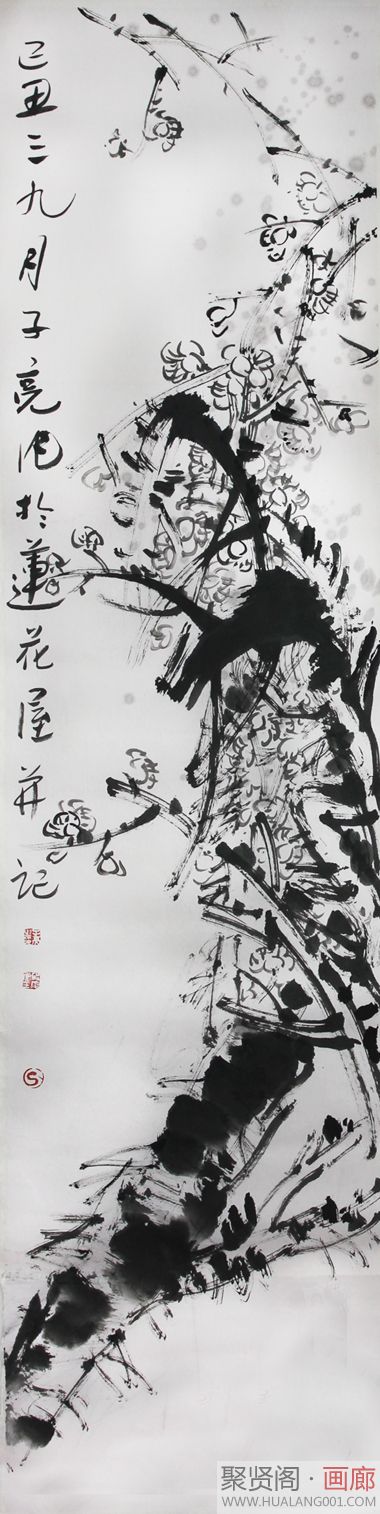 己丑三九月子亮作於蓮花屋并记
聚贤阁·画廊
WWW.HUALANG001.COM